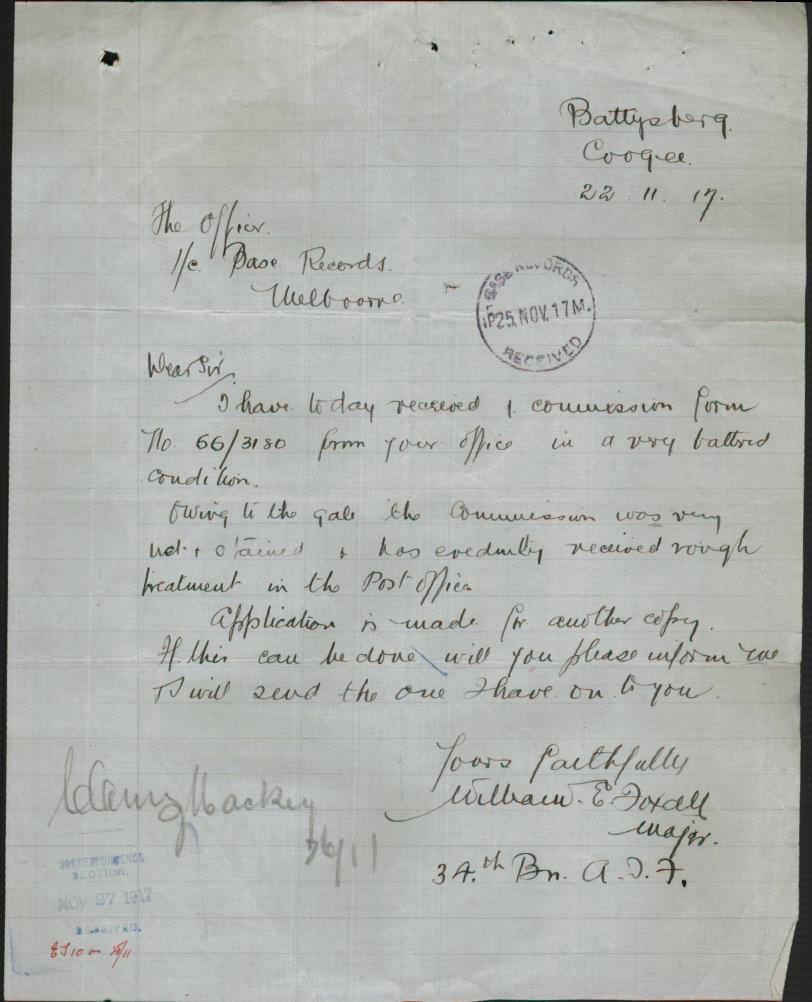 Battysberg.
Coogee.
22. 11. 17.
The Officer.
I/c Base Records.
Melbourne.
BASE RECORDS
25. NOV. 17
RECEIVED
Dear Sir,
I have today received + commission form
No. 66/3180 from your office in a very battred
condition.
Owing to the gale the Commission was very
wet + stained + has evedintly received rough
treatment in the Post Office
Application is made for another copy.
If this can be done will you please inform me
+ I will send the one I have on to you.
Yours Faithfully
William. E Foxall
Major.
34.th Bn. A.I.F.
Mackey
26/11
CORRESPONDENCE
SECTION.
NOV 27 1917
RECEIVED.